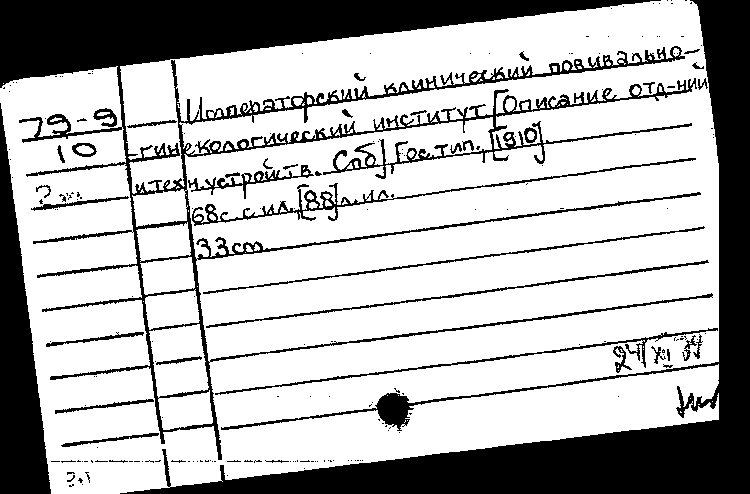 Императорский клинический повивально-
79-9
10
-гинекологический институт [Описание отд-ний
и техн. устройств. Спб], Гос. тип., [1910].
68с. с ил., [88]л. ил.
33cm.
24 XII